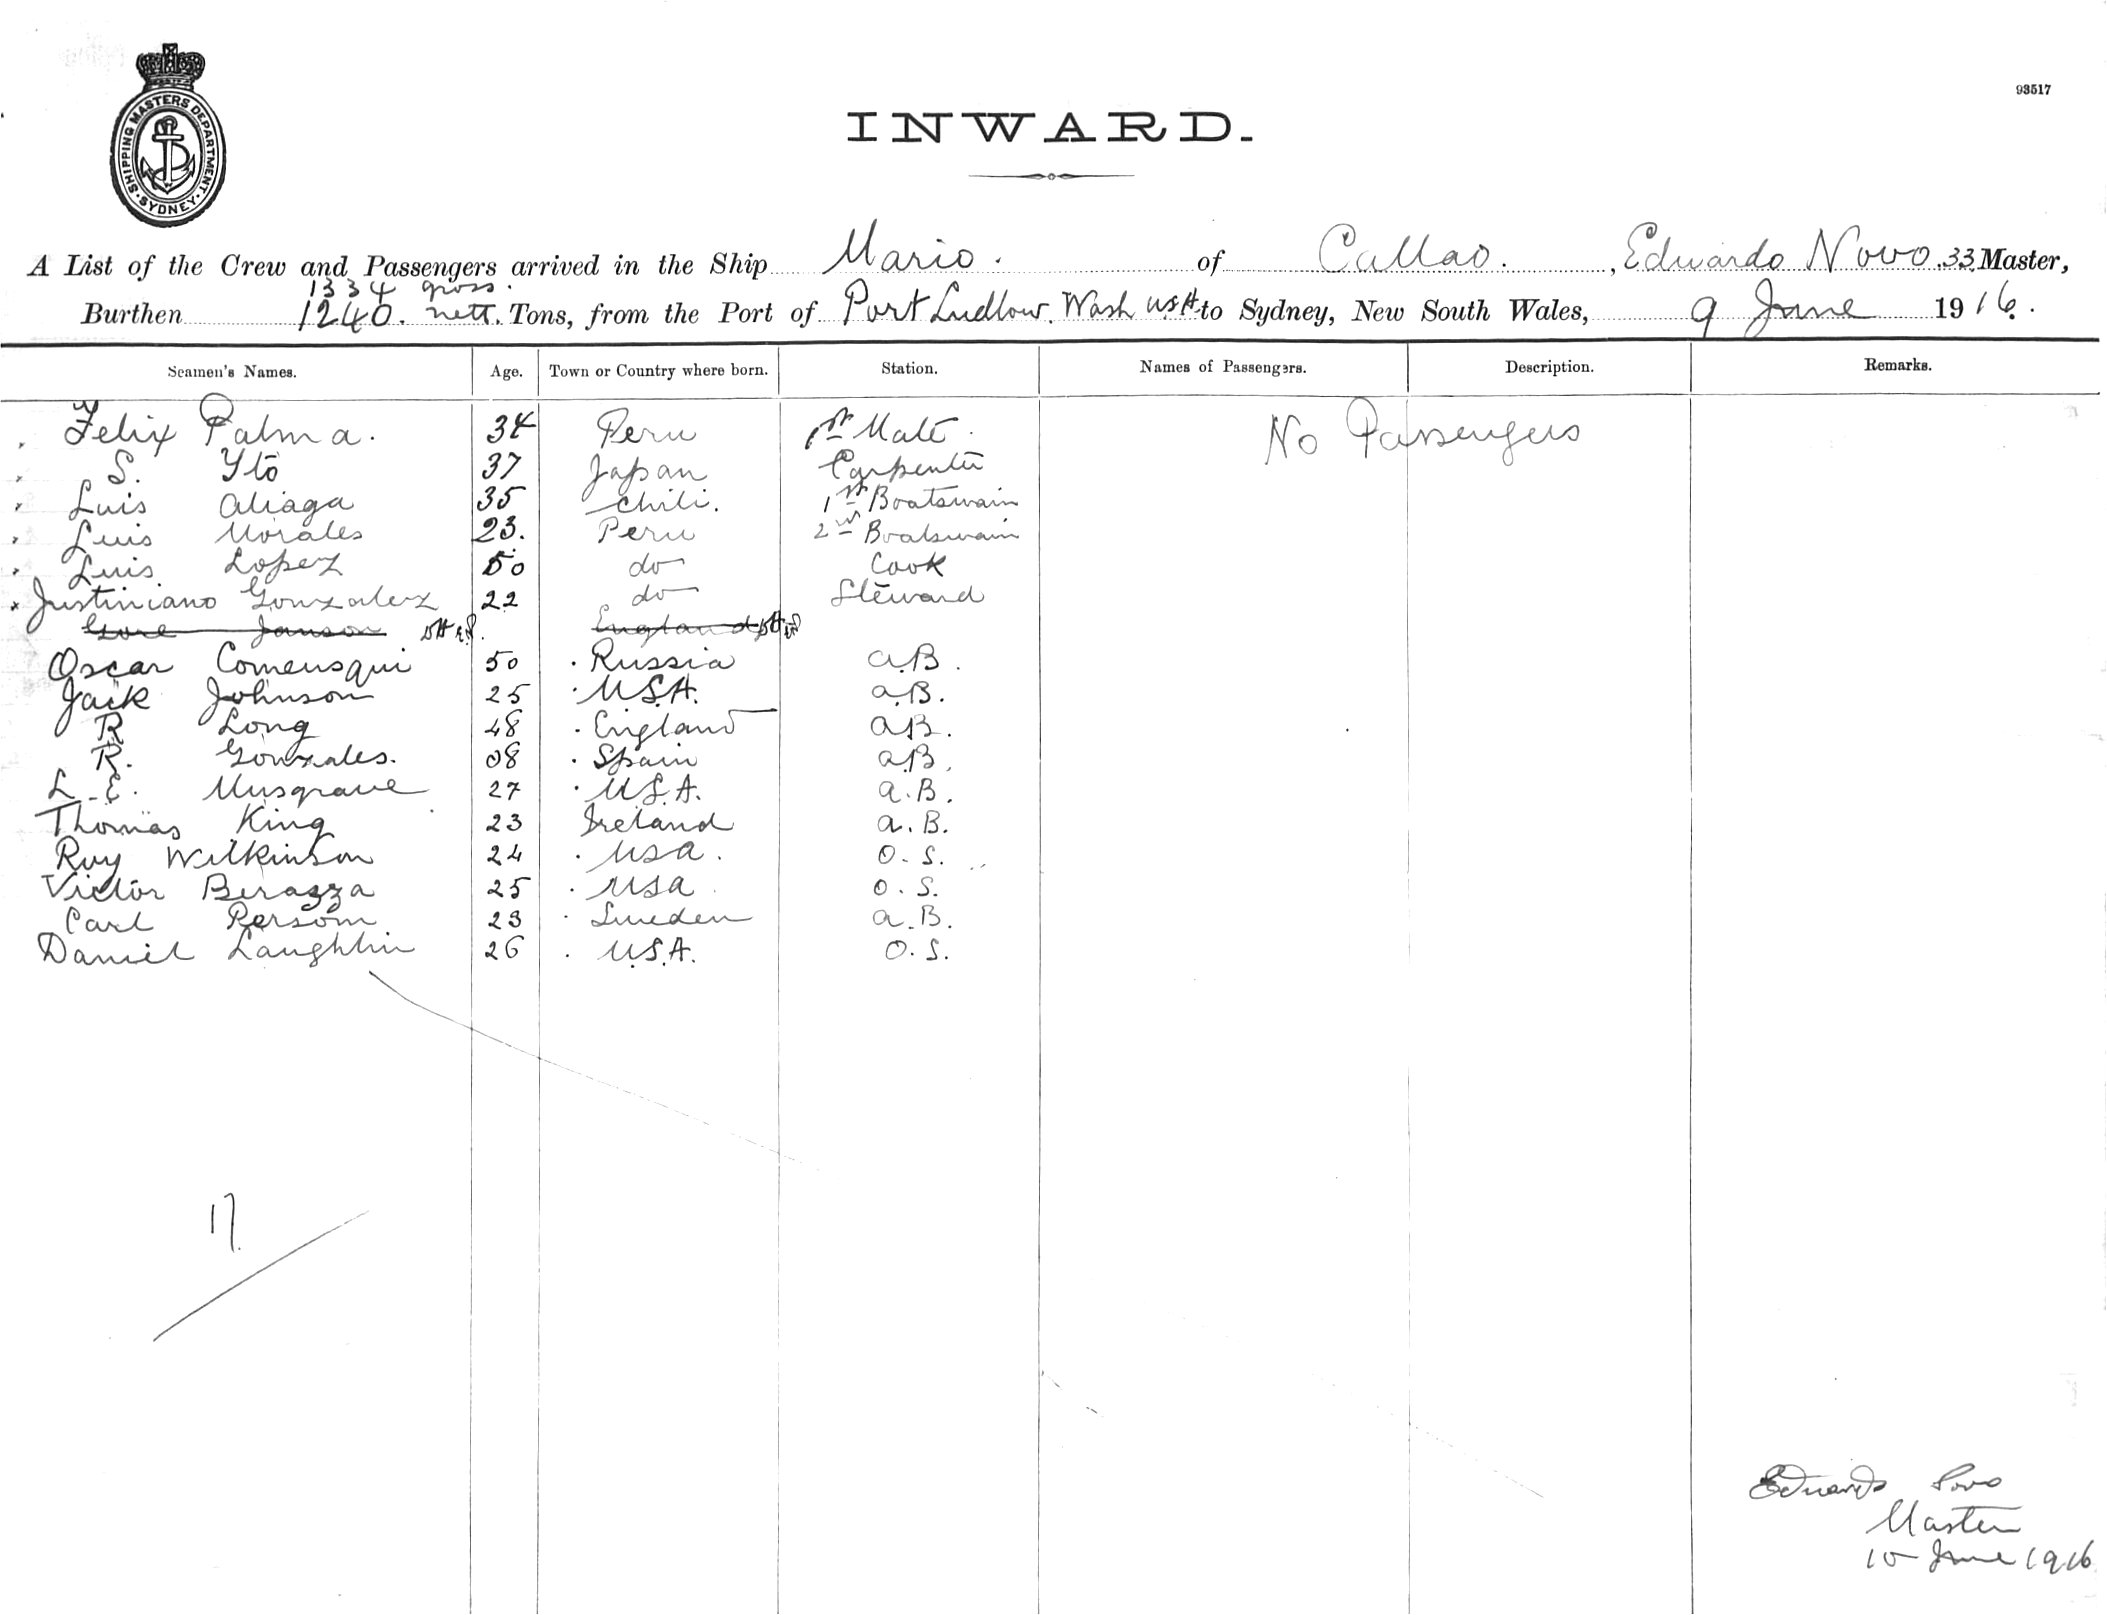 SHIPPING MASTERS DEPARTMENT · SYDNEY ·
93517
INWARD.
A List of the Crew and Passengers arrived in the Ship Mario. of Callao. , Eduardo Novo. 33 Master,
1334 gross.
Burthen 1240. nett. Tons, from the Port of Port Ludlow. Wash U.S.A. to Sydney, New South Wales, 9 June 1916.
Seamen's Names. Age. Town or Country where born. Station. Names of Passengers. Description. Remarks.
Felix Palma. 34 Peru 1st Mate. No Passengers
S. Yto 37 Japan Carpenter
Luis Aliaga 35 Chili. 1st Boatswain
Luis Morales 23. Peru 2nd Boatswain
Luis Lopez 50 do Cook
Justiniano Gonzalez 22 do Steward
Gore Janson England
Oscar Comeusqui 50 Russia A.B.
Jack Johnson 25 U.S.A. A.B.
R Long 48 England A.B.
R. Gonzales. 38 Spain A.B.
L. E. Musgrave 27 U.S.A. A.B.
Thomas King 23 Ireland A.B.
Roy Wilkinson 24 USA. O.S.
Victor Berazza 25 USA O.S.
Carl Persom 23 Sweden A.B.
Daniel Laughlin 26 U.S.A. O.S.
17
Eduardo Novo
Master
10 June 1916